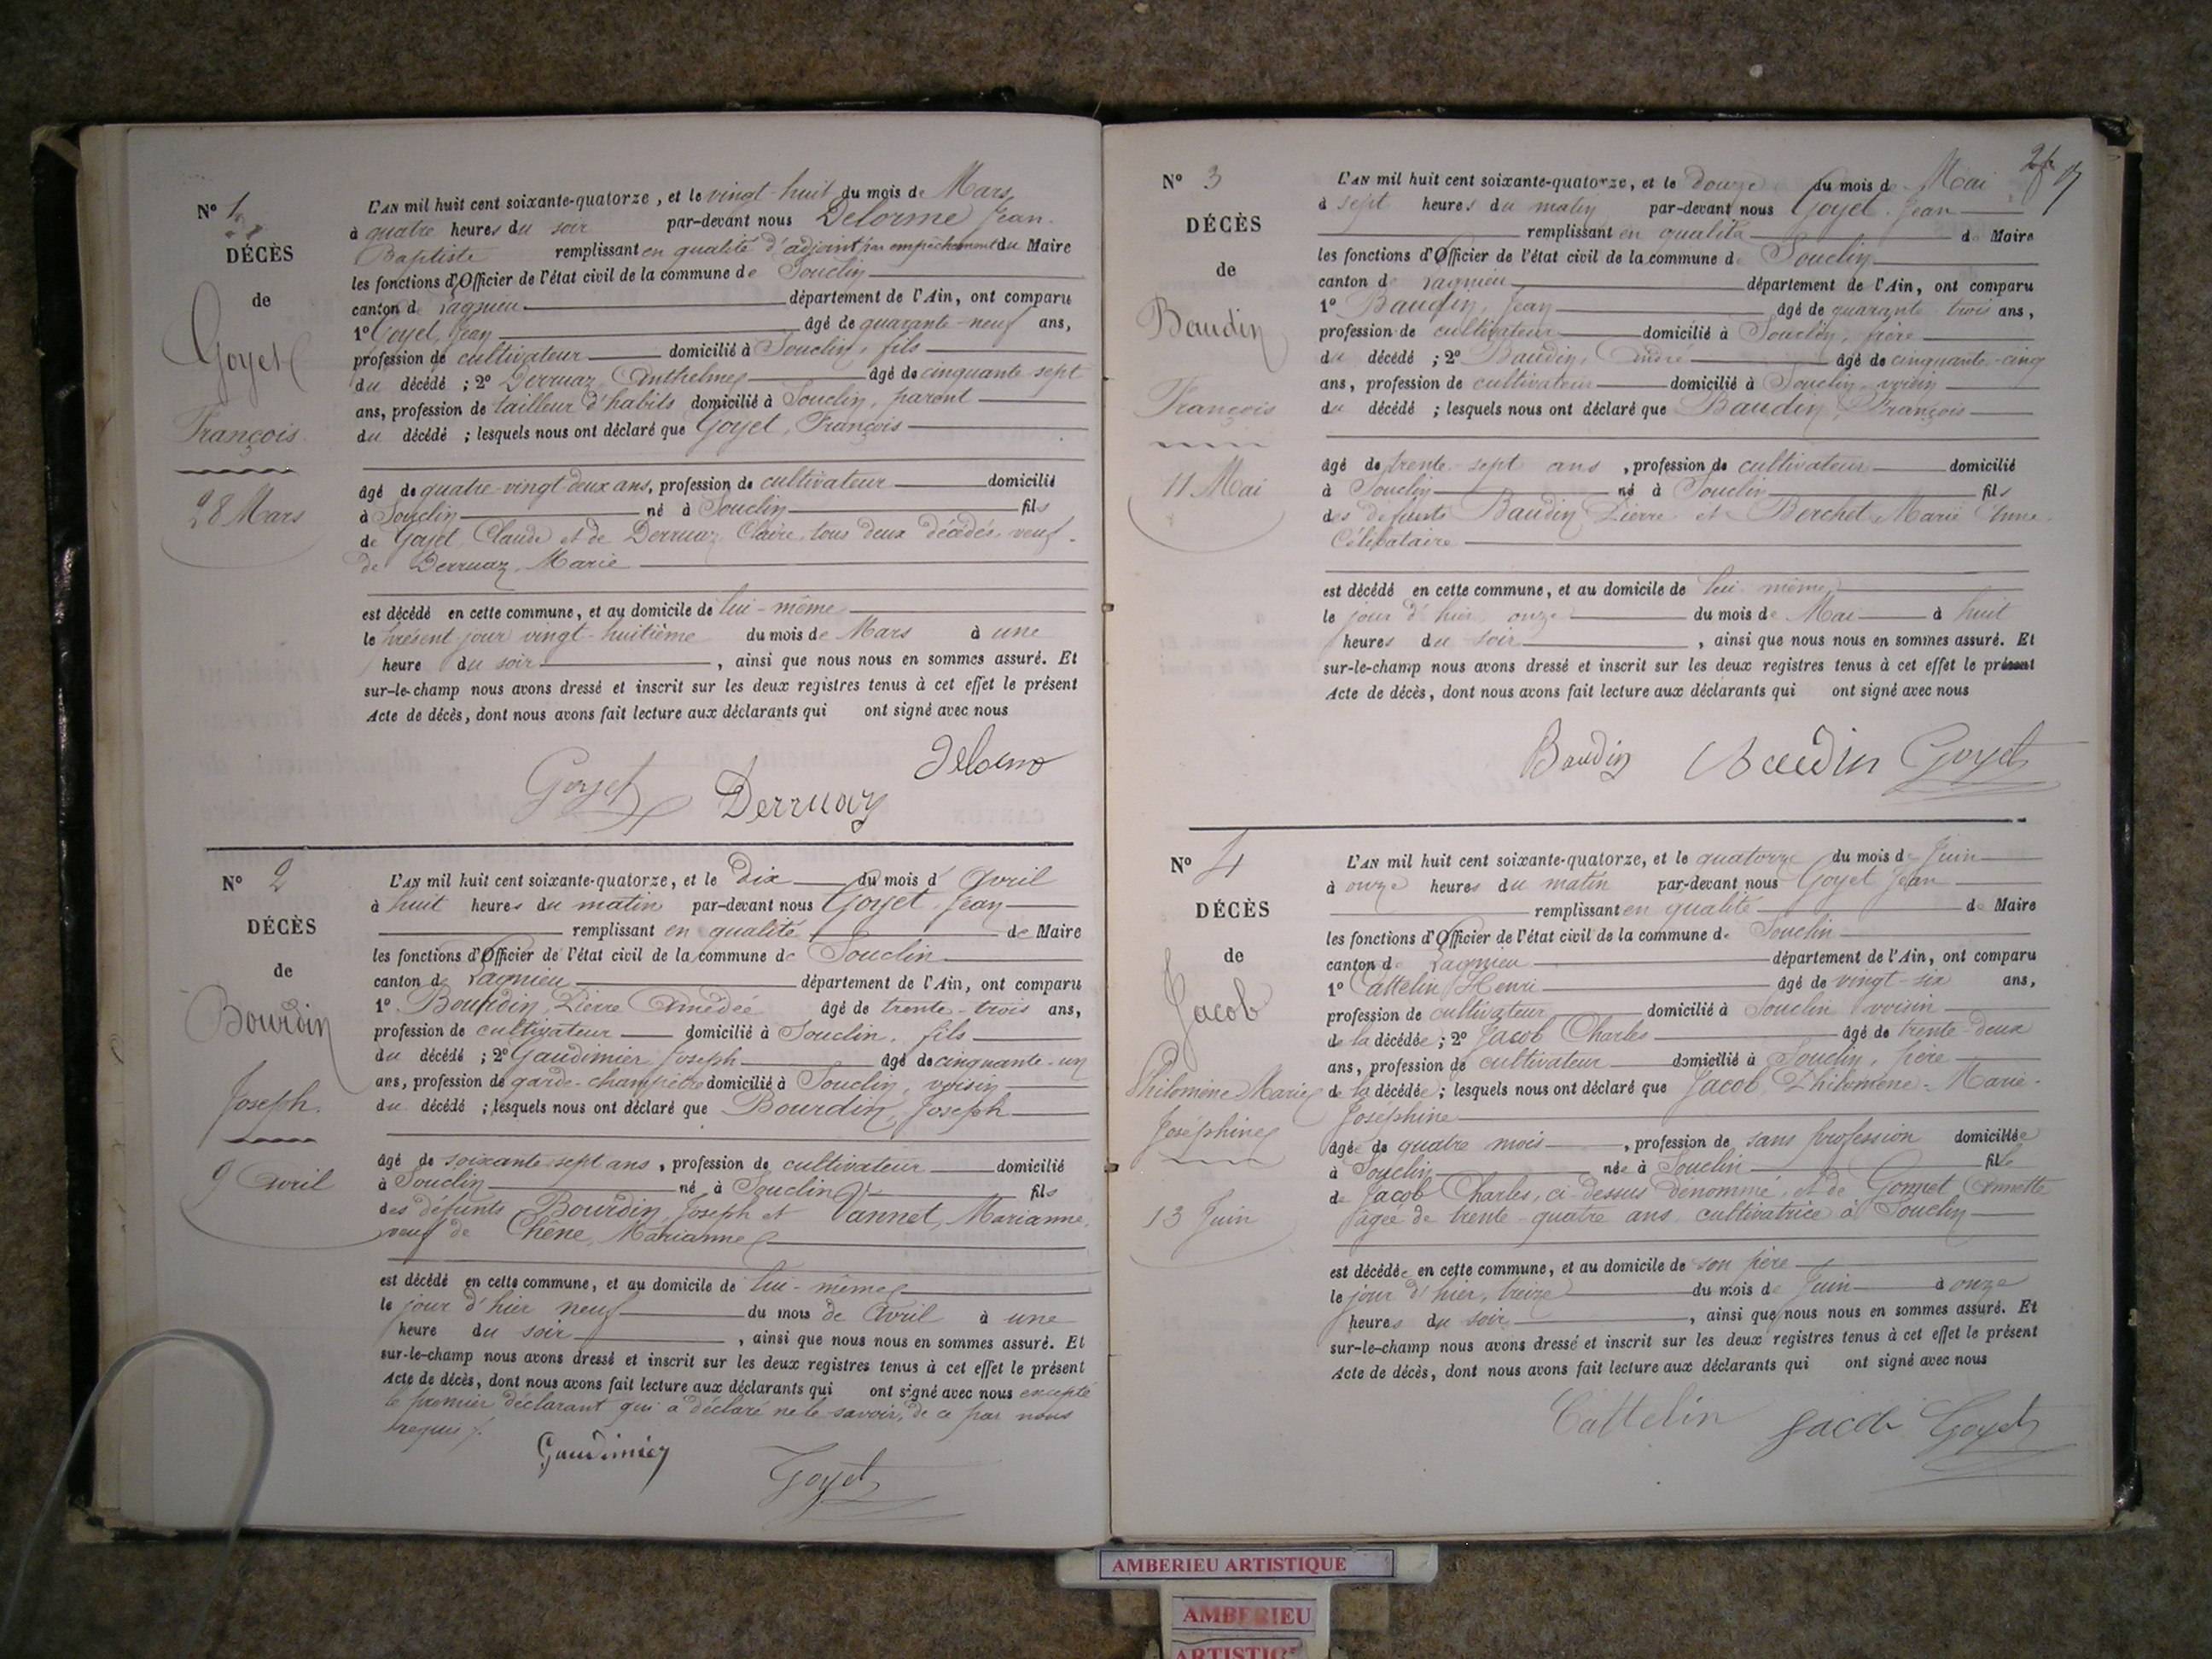 N° 1
DÉCÈS
de
Goyet
François
28 Mars
L'AN mil huit cent soixante-quatorze, et le vingt-huit du mois de Mars
à quatre heures du soir par-devant nous Delorme Jean-
Baptiste remplissant en qualité d'adjoint par empêchement du Maire
les fonctions d'Officier de l'état civil de la commune de Souclin
canton de Lagnieu département de l'Ain, ont comparu
1° Goyet, Jean âgé de quarante-neuf ans,
profession de cultivateur domicilié à Souclin, fils
du décédé ; 2° Derruaz Anthelme âgé de cinquante sept
ans, profession de tailleur d'habits domicilié à Souclin, parent
du décédé ; lesquels nous ont déclaré que Goyet, François
âgé de quatre-vingt deux ans, profession de cultivateur domicilié
à Souclin né à Souclin fils
de Goyet, Claude et de Derruaz Claire, tous deux décédés, veuf
de Derruaz, Marie
est décédé en cette commune, et au domicile de lui-même
le présent jour vingt-huitième du mois de Mars à une
heure du soir, ainsi que nous nous en sommes assuré. Et
sur-le-champ nous avons dressé et inscrit sur les deux registres tenus à cet effet le présent
Acte de décès, dont nous avons fait lecture aux déclarants qui ont signé avec nous
Goyet Derruaz Delorme
N° 2
DÉCÈS
de
Bourdin
Joseph
9 Avril
L'AN mil huit cent soixante-quatorze, et le dix du mois d'Avril
à huit heures du matin par-devant nous Goyet, Jean
remplissant en qualité de Maire
les fonctions d'Officier de l'état civil de la commune de Souclin
canton de Lagnieu département de l'Ain, ont comparu
1° Bourdin, Pierre Amédée âgé de trente-trois ans,
profession de cultivateur domicilié à Souclin, fils
du décédé ; 2° Gaudimier, Joseph âgé de cinquante-un
ans, profession de garde-champêtre domicilié à Souclin, voisin
du décédé ; lesquels nous ont déclaré que Bourdin, Joseph
âgé de soixante sept ans, profession de cultivateur domicilié
à Souclin né à Souclin fils
des défunts Bourdin, Joseph et Vannet, Marianne,
veuf de Chêne, Marianne
est décédé en cette commune, et au domicile de lui-même
le jour d'hier neuf du mois de Avril à une
heure du soir, ainsi que nous nous en sommes assuré. Et
sur-le-champ nous avons dressé et inscrit sur les deux registres tenus à cet effet le présent
Acte de décès, dont nous avons fait lecture aux déclarants qui ont signé avec nous excepté
le premier déclarant qui a déclaré ne le savoir, de ce par nous
requis.
Gaudimier Goyet
N° 3
DÉCÈS
de
Baudin
François
11 Mai
L'AN mil huit cent soixante-quatorze, et le douze du mois de Mai
à sept heures du matin par-devant nous Goyet, Jean
remplissant en qualité de Maire
les fonctions d'Officier de l'état civil de la commune de Souclin
canton de Lagnieu département de l'Ain, ont comparu
1° Baudin, Jean âgé de quarante trois ans,
profession de cultivateur domicilié à Souclin, frère
du décédé ; 2° Baudin, André âgé de cinquante-cinq
ans, profession de cultivateur domicilié à Souclin, voisin
du décédé ; lesquels nous ont déclaré que Baudin, François
âgé de trente-sept ans, profession de cultivateur domicilié
à Souclin né à Souclin fils
des défunts Baudin Pierre et Berchet Marie Anne,
Célibataire
est décédé en cette commune, et au domicile de lui-même
le jour d'hier onze du mois de Mai à huit
heures du soir, ainsi que nous nous en sommes assuré. Et
sur-le-champ nous avons dressé et inscrit sur les deux registres tenus à cet effet le présent
Acte de décès, dont nous avons fait lecture aux déclarants qui ont signé avec nous
Baudin Baudin Goyet
N° 4
DÉCÈS
de
Jacob
Philomène Marie
Joséphine
13 Juin
L'AN mil huit cent soixante-quatorze, et le quatorze du mois de Juin
à onze heures du matin par-devant nous Goyet Jean
remplissant en qualité de Maire
les fonctions d'Officier de l'état civil de la commune de Souclin
canton de Lagnieu département de l'Ain, ont comparu
1° Cattelin Henri âgé de vingt-six ans,
profession de cultivateur domicilié à Souclin voisin
de la décédée ; 2° Jacob Charles âgé de trente-deux
ans, profession de cultivateur domicilié à Souclin, père
de la décédée ; lesquels nous ont déclaré que Jacob, Philomène-Marie-
Joséphine
âgée de quatre mois, profession de sans profession domiciliée
à Souclin née à Souclin fille
de Jacob Charles, ci-dessus dénommé, et de Gonnet Annette
âgée de trente-quatre ans cultivatrice à Souclin
est décédée en cette commune, et au domicile de son père
le jour d'hier, treize du mois de Juin à onze
heures du soir, ainsi que nous nous en sommes assuré. Et
sur-le-champ nous avons dressé et inscrit sur les deux registres tenus à cet effet le présent
Acte de décès, dont nous avons fait lecture aux déclarants qui ont signé avec nous
Cattelin Jacob Goyet
AMBERIEU ARTISTIQUE
AMBERIEU
ARTISTIQUE